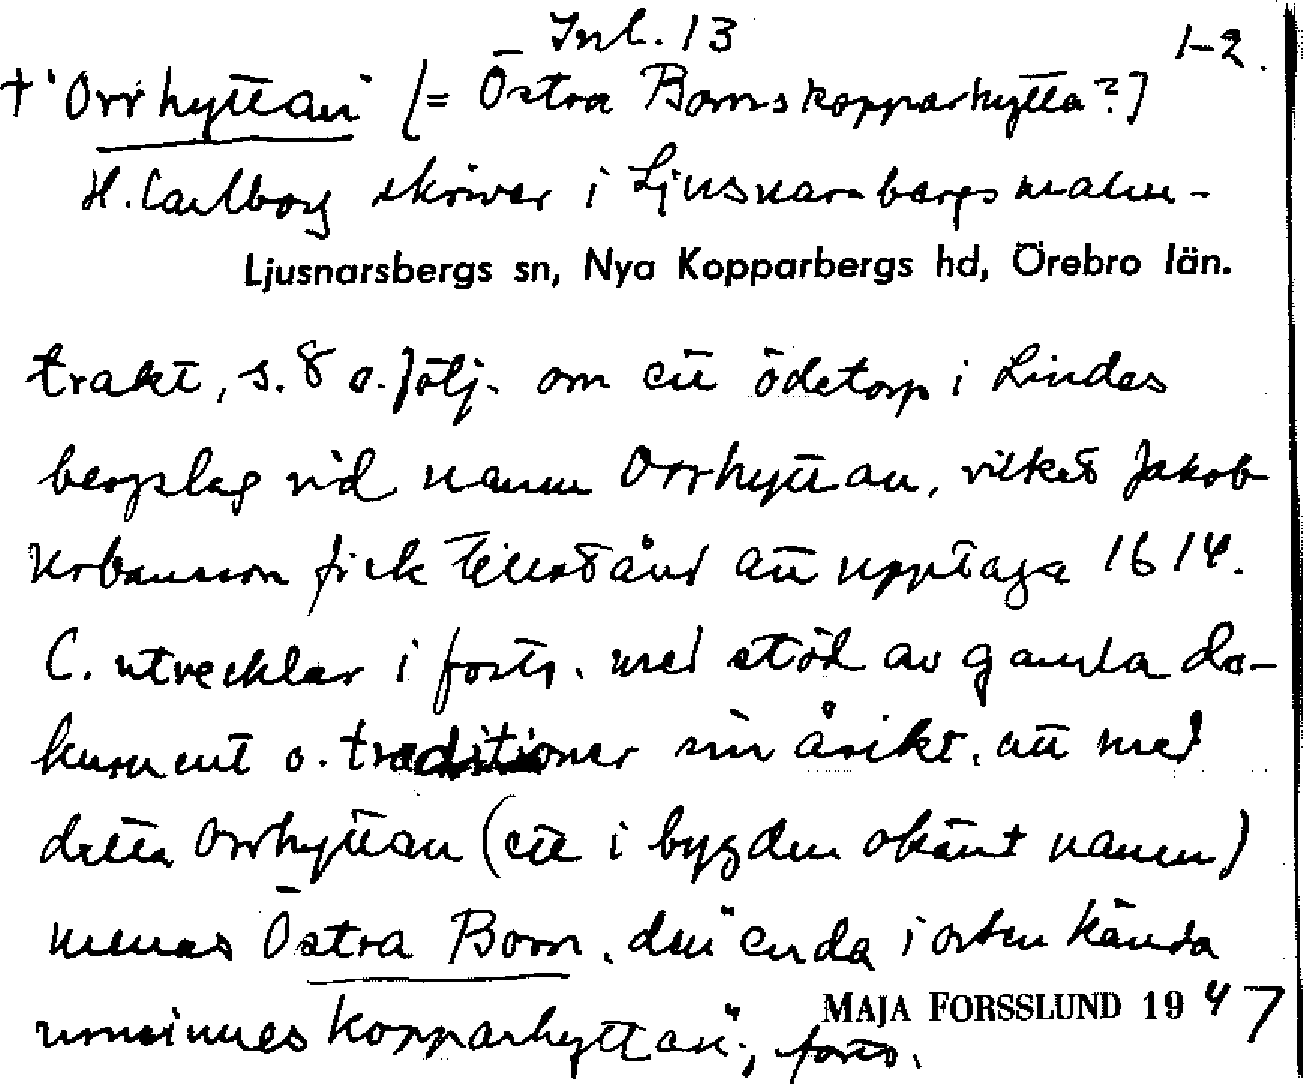 Inl. 13
1-2.
†"Orrhyttan" (= Östra Bornskopparhytta?)
H. Carlborg skriver i Ljusnarsbergs malm-
Ljusnarsbergs sn, Nya Kopparbergs hd, Örebro län.
trakt, s. 8 o. följ. om ett ödetorp i Lindes
bergslag vid namn Orrhyttan, vilket Jakob
Urbansson fick tillstånd att upptaga 1614.
C. utvecklar i forts. med stöd av gamla do-
kument o. traditioner sin åsikt, att med
detta Orrhyttan (ett i bygden okänt namn)
menas Östra Born, den "enda i orten kända
kopparhyttan"; forts.
MAJA FORSSLUND 1947